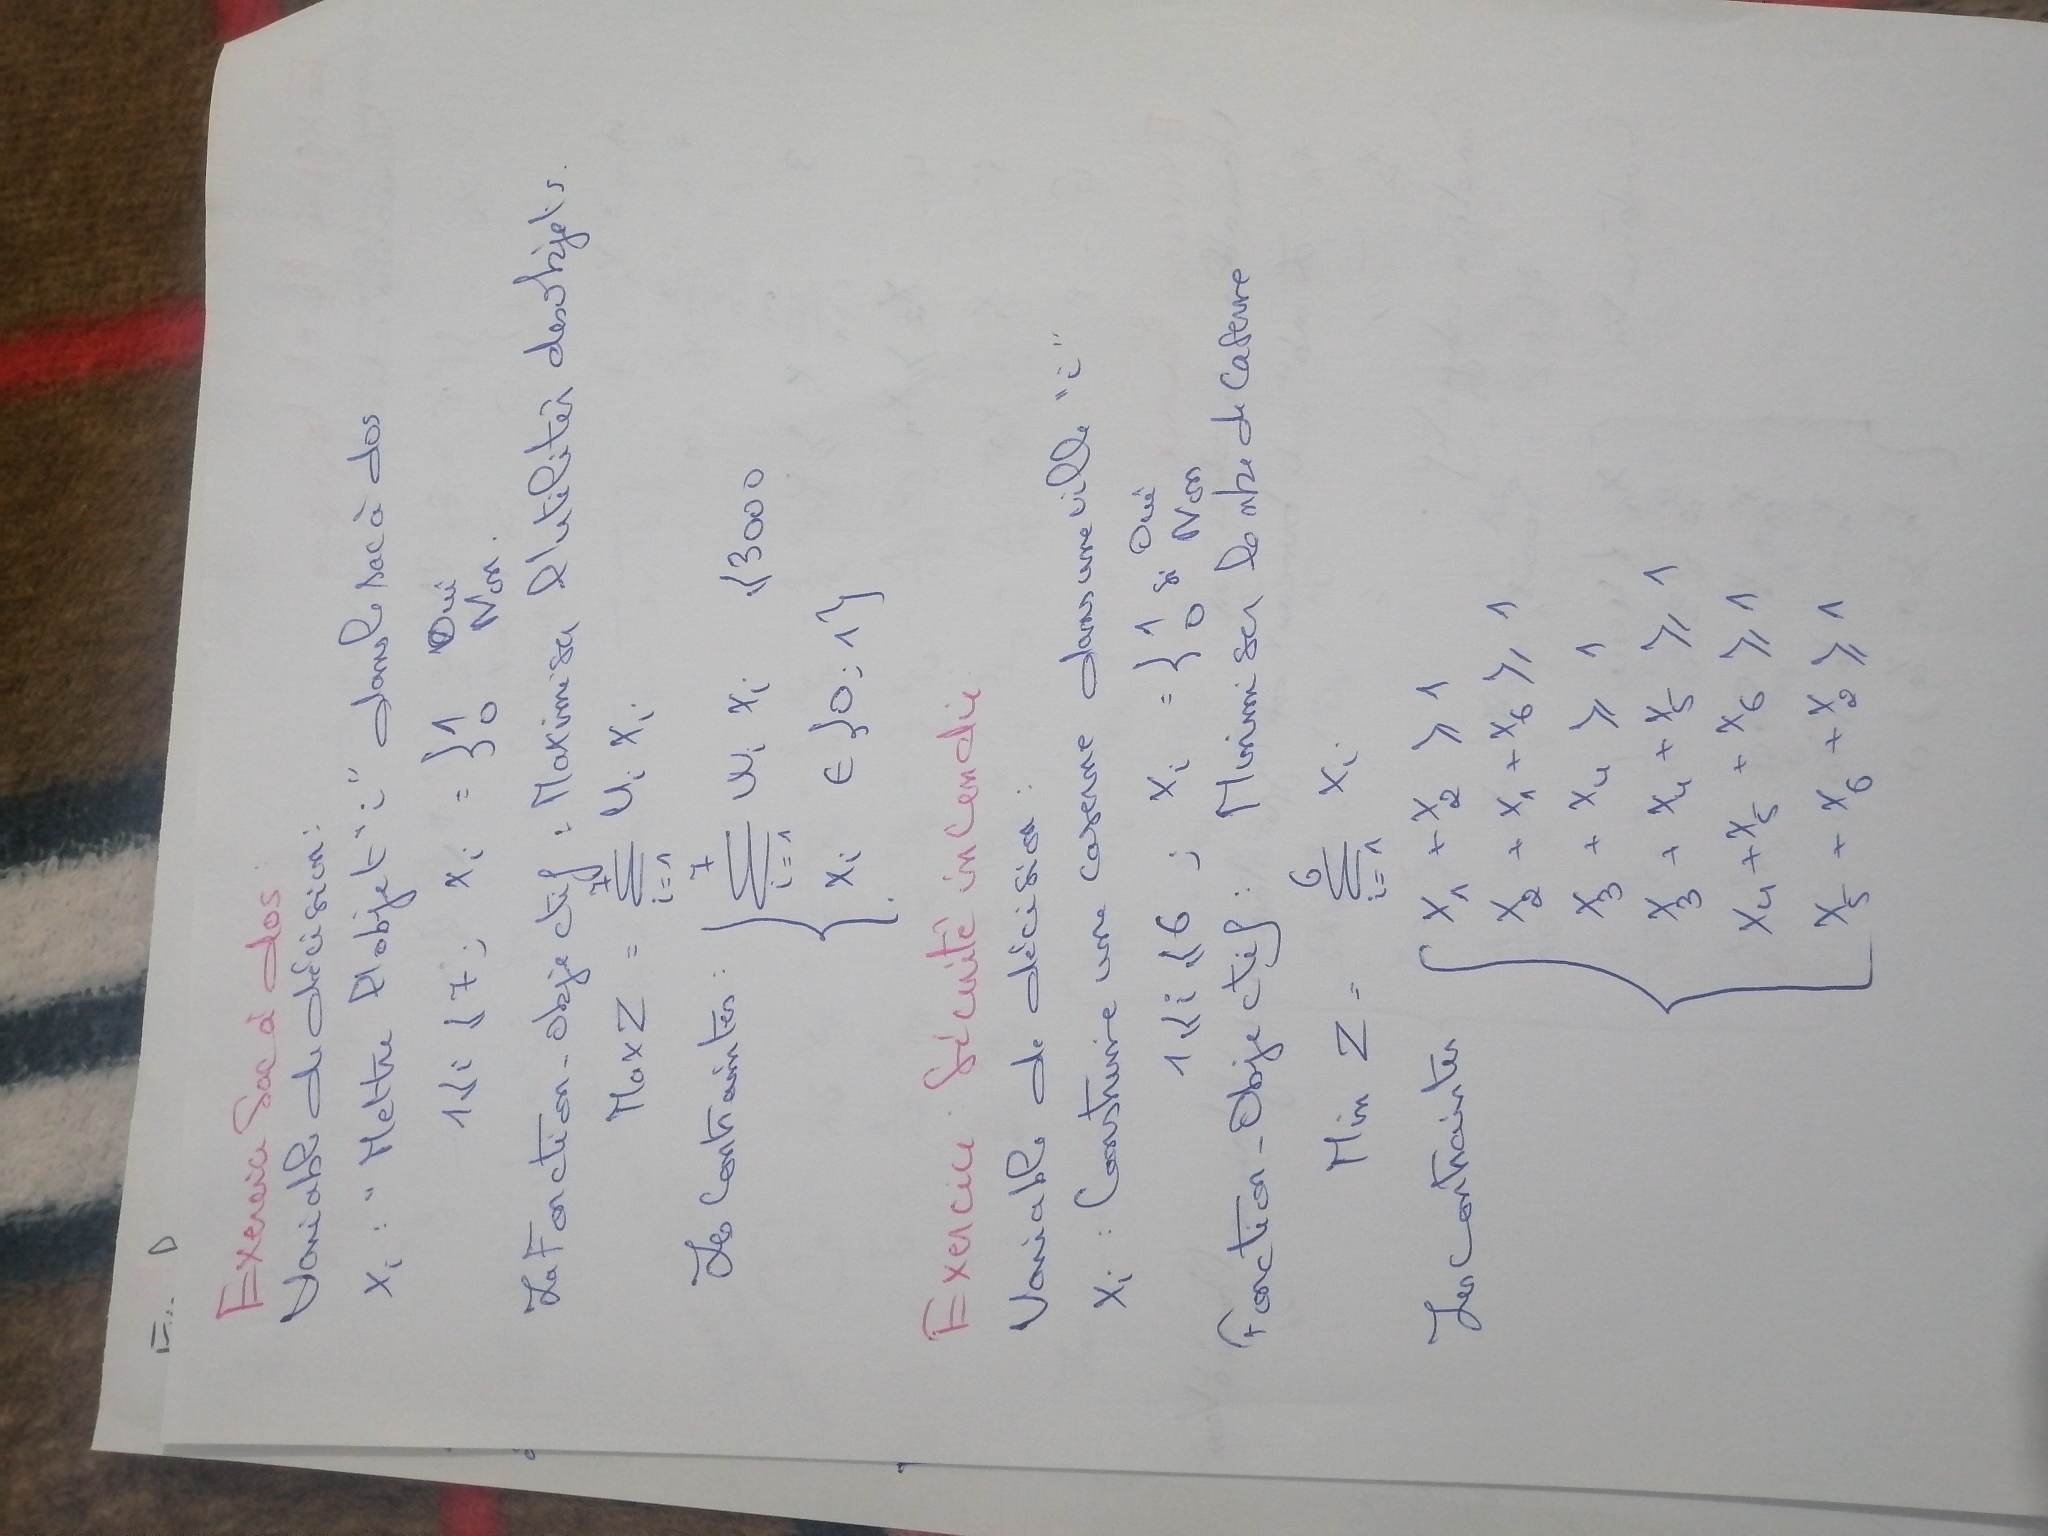 Ex D
Exercice Sac à dos
Variable de décision :
Xi : "Mettre l'objet "i" dans le sac à dos
1 ≤ i ≤ 7 ; Xi = { 1 Oui
0 Non.
La Fonction-objectif : Maximiser l'utilité des objets.
Max Z = Σ_{i=1}^{7} Ui Xi
Les contraintes : Σ_{i=1}^{7} Wi Xi ≤ 3000
Xi ∈ {0 ; 1}
Exercice : Sécurité incendie
Variable de décision :
Xi : Construire une caserne dans une ville "i"
1 ≤ i ≤ 6 ; Xi = { 1 si Oui
0 Non
Fonction-Objectif : Minimiser le nbre de caserne
Min Z = Σ_{i=1}^{6} Xi
Les contraintes X1 + X2 ≥ 1
X2 + X1 + X6 ≥ 1
X3 + X4 ≥ 1
X3 + X4 + X5 ≥ 1
X4 + X5 + X6 ≥ 1
X5 + X6 + X2 ≥ 1